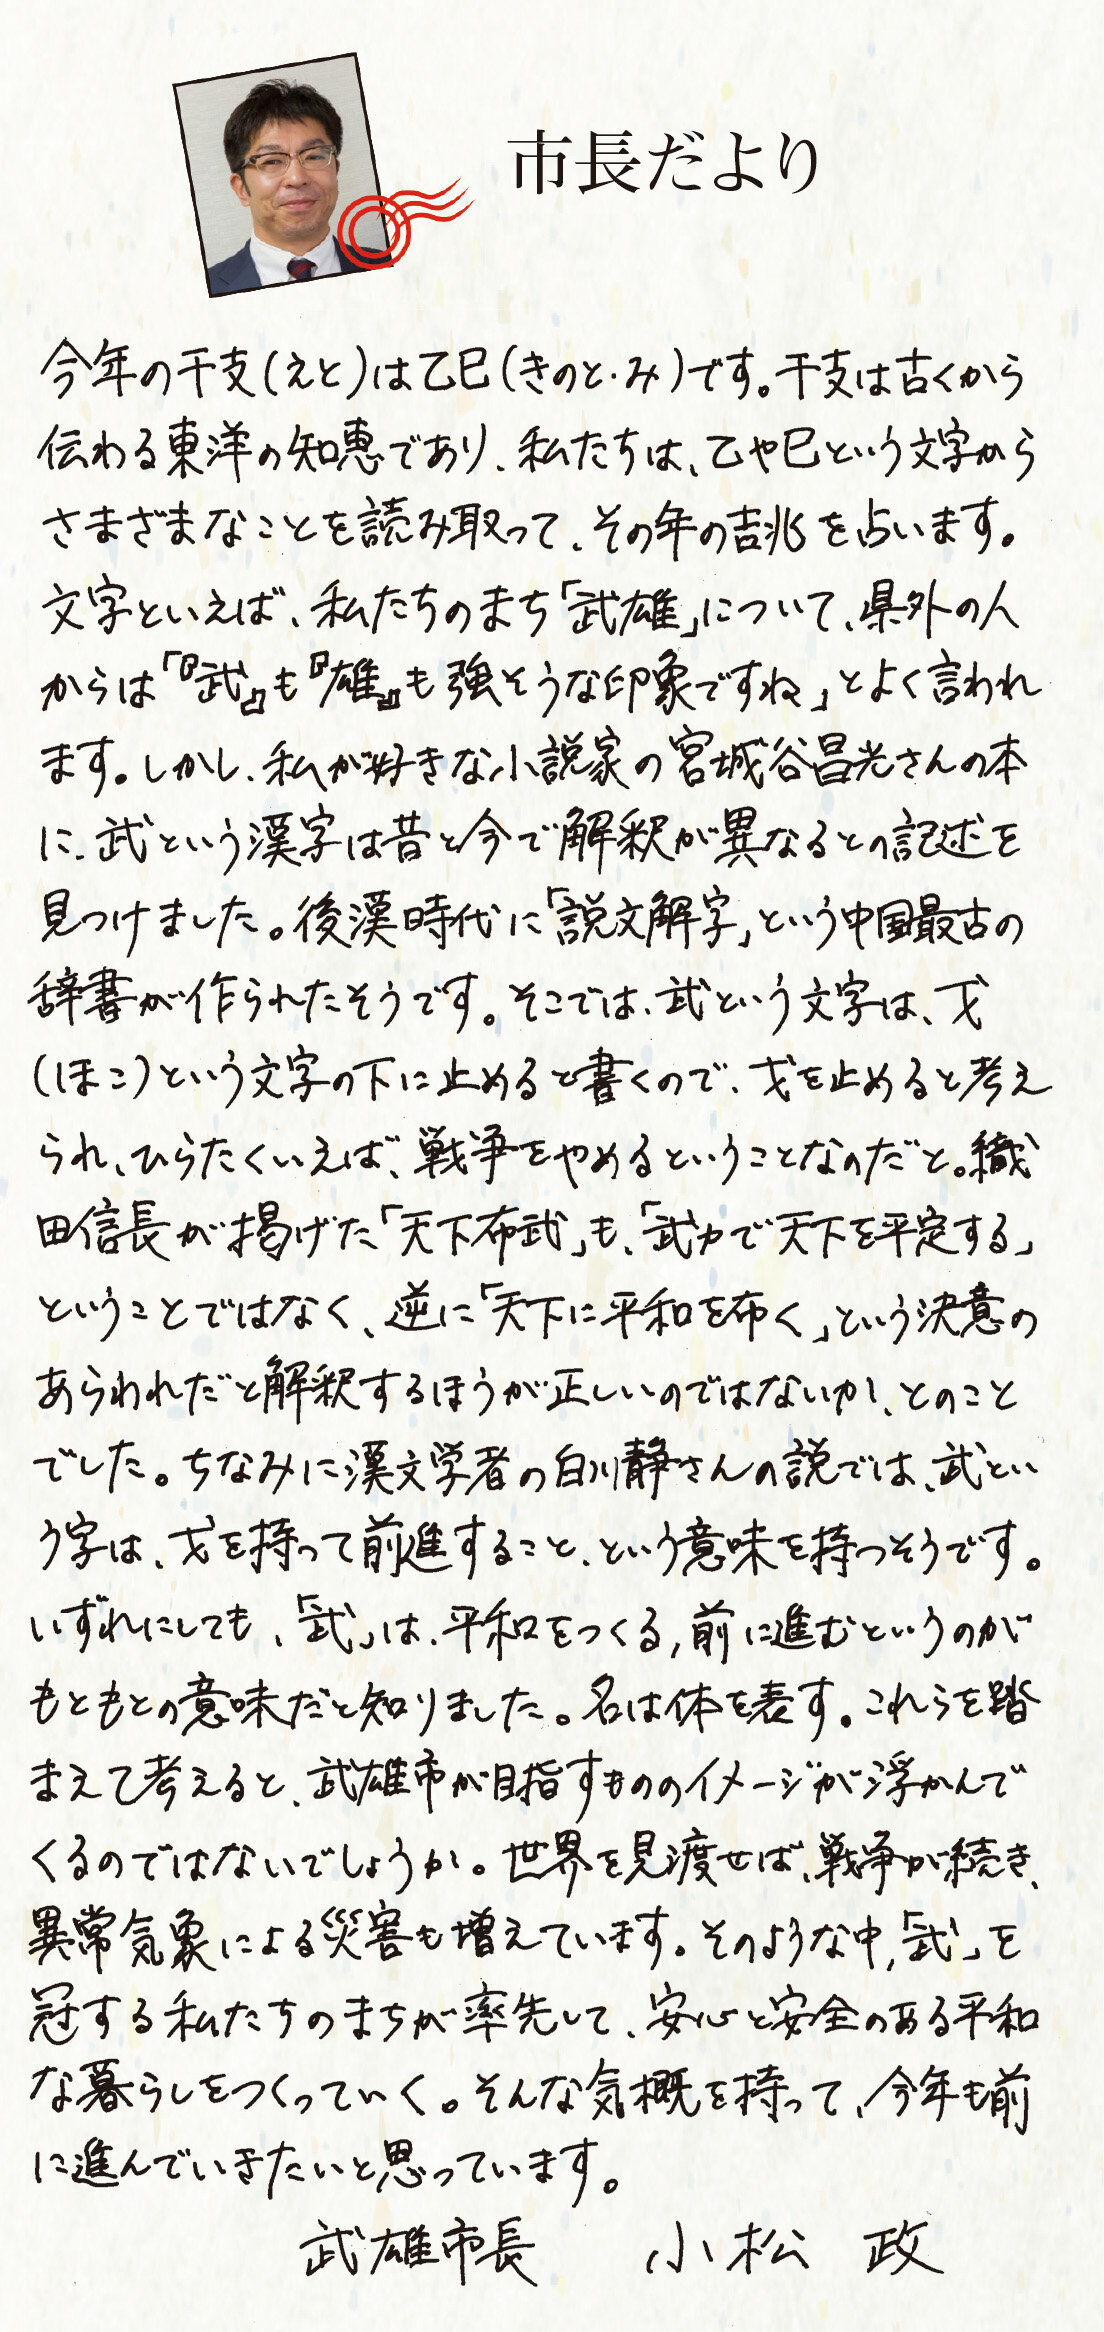 市長だより
今年の干支(えと)は乙巳(きのと・み)です。干支は古くから
伝わる東洋の知恵であり、私たちは、乙や巳という文字から
さまざまなことを読み取って、その年の吉兆を占います。
文字といえば、私たちのまち「武雄」について、県外の人
からは「『武』も『雄』も強そうな印象ですね」とよく言われ
ます。しかし、私が好きな小説家の宮城谷昌光さんの本
に、武という漢字は昔と今で解釈が異なるとの記述を
見つけました。後漢時代に「説文解字」という中国最古の
辞書が作られたそうです。そこでは、武という文字は、戈
(ほこ)という文字の下に止めると書くので、戈を止めると考え
られ、ひらたくいえば、戦争をやめるということなのだと。織
田信長が掲げた「天下布武」も、「武力で天下を平定する」
ということではなく、逆に「天下に平和を布く」という決意の
あらわれだと解釈するほうが正しいのではないか、とのこと
でした。ちなみに漢文学者の白川静さんの説では、武とい
う字は、戈を持って前進すること、という意味を持つそうです。
いずれにしても、「武」は、平和をつくる,前に進むというのが
もともとの意味だと知りました。名は体を表す。これらを踏
まえて考えると、武雄市が目指すもののイメージが浮かんで
くるのではないでしょうか。世界を見渡せば、戦争が続き、
異常気象による災害も増えています。そのような中,「武」を
冠する私たちのまちが率先して、安心と安全のある平和
な暮らしをつくっていく。そんな気概を持って、今年も前
に進んでいきたいと思っています。
武雄市長 小松 政